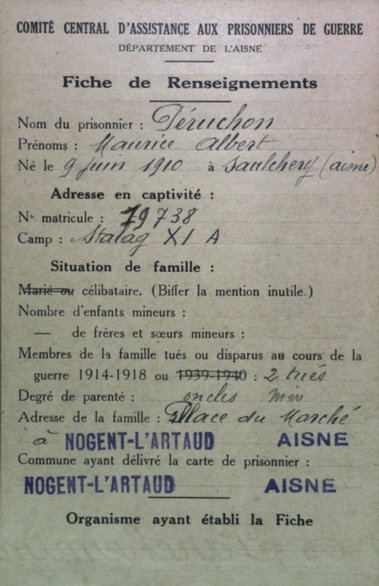 COMITÉ CENTRAL D'ASSISTANCE AUX PRISONNIERS DE GUERRE
DÉPARTEMENT DE L'AISNE
Fiche de Renseignements
Nom du prisonnier : Péruchon
Prénoms : Maurice Albert
Né le 9 juin 1910 à Saulchery (aisne)
Adresse en captivité :
N° matricule : 79738
Camp : Stalag XI A
Situation de famille :
Marié ou célibataire. (Biffer la mention inutile.)
Nombre d'enfants mineurs :
— de frères et sœurs mineurs :
Membres de la famille tués ou disparus au cours de la
guerre 1914-1918 ou 1939-1940 : 2 tués
Degré de parenté : oncles
Adresse de la famille : Place du Marché
à NOGENT-L'ARTAUD AISNE
Commune ayant délivré la carte de prisonnier :
NOGENT-L'ARTAUD AISNE
Organisme ayant établi la Fiche